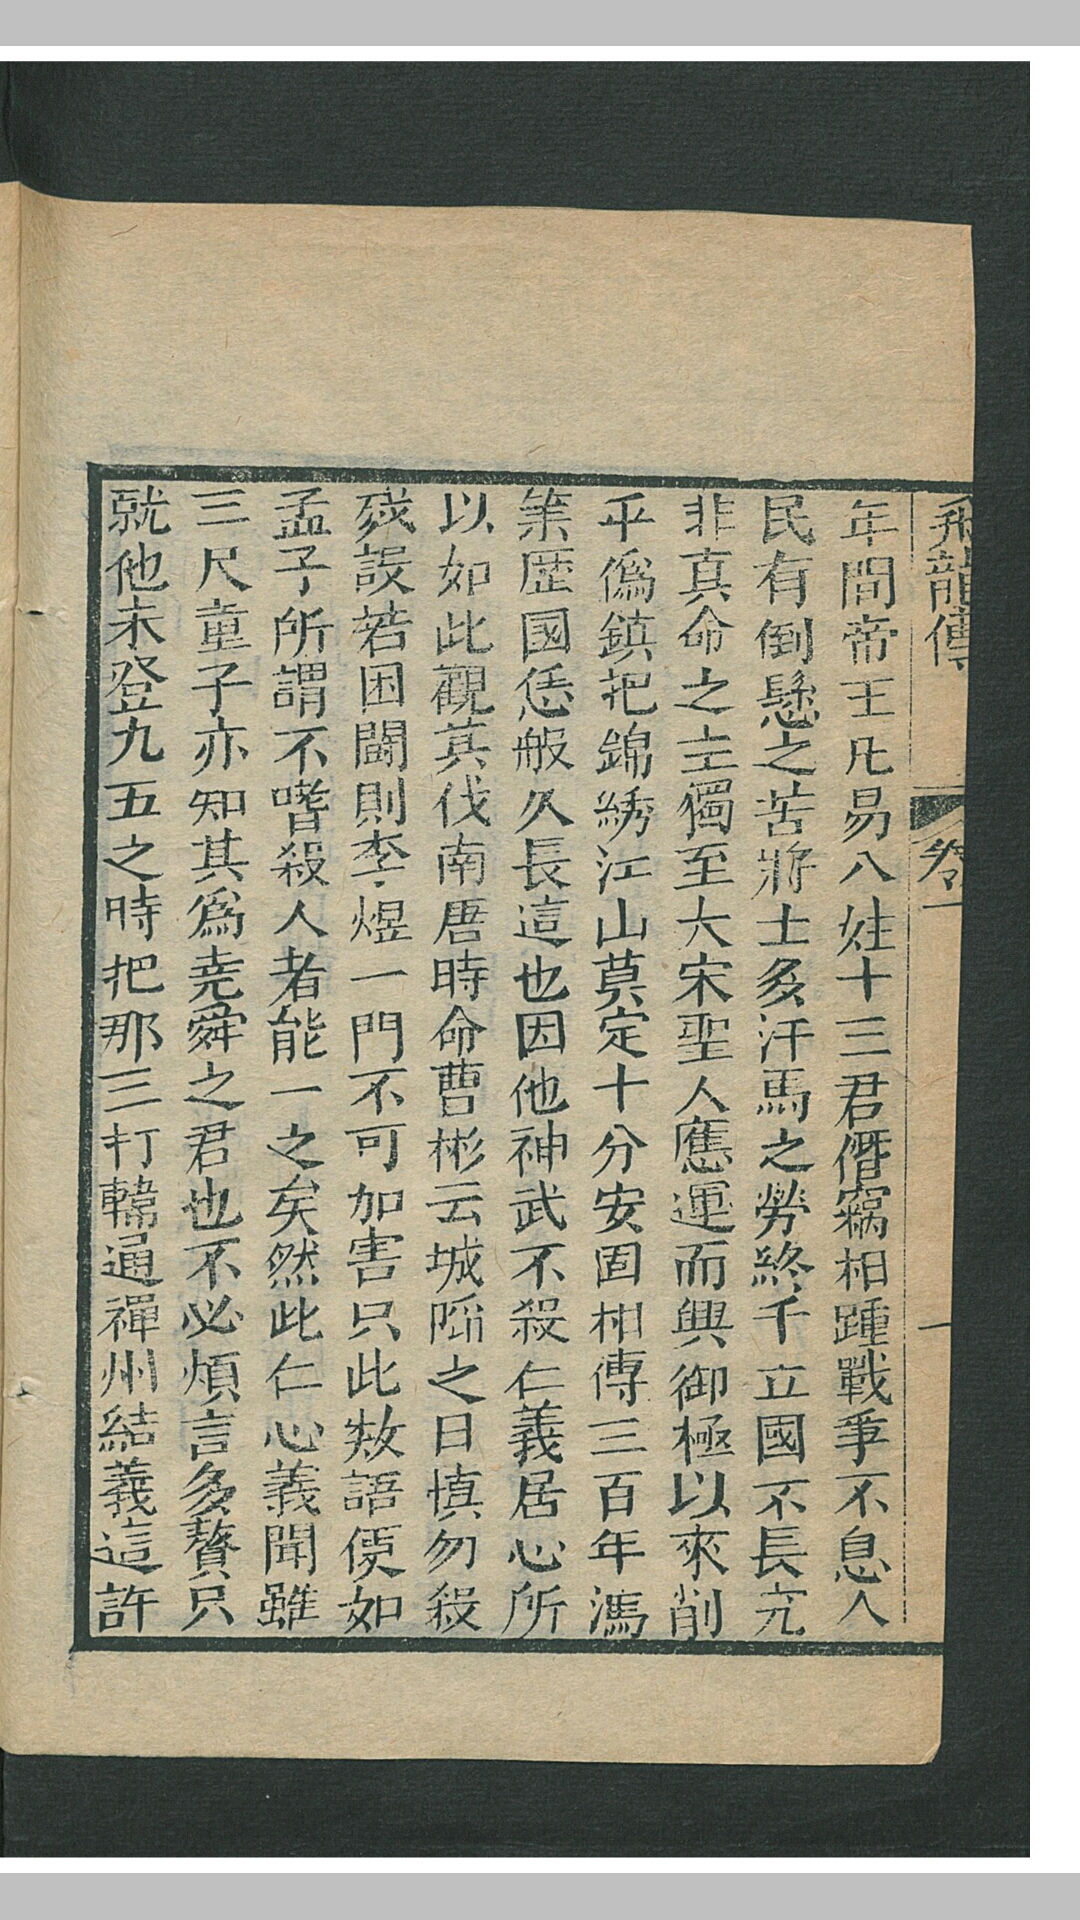 飛龍傳 卷一 一
年間帝王凡易八姓十三君僭竊相踵戰爭不息人
民有倒懸之苦將士多汗馬之勞終千立國不長究
非真命之主獨至大宋聖人應運而興御極以來削
平僞鎮把錦綉江山莫定十分安固相傳三百年鴻
業歷國恁般久長這也因他神武不殺仁義居心所
以如此觀其伐南唐時命曹彬云城陷之日慎勿殺
戮設若困鬭則李煜一門不可加害只此数語便如
孟子所謂不嗜殺人者能一之矣然此仁心義聞雖
三尺童子亦知其爲尭舜之君也不必煩言多贅只
就他未登九五之時把那三打韓通禪州結義這許